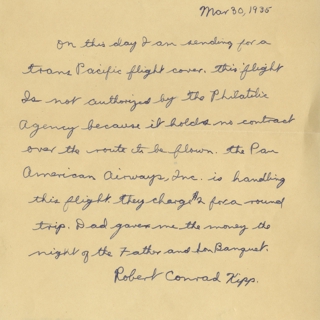 Mar 30, 1935
On this day I am sending for a
trans Pacific flight cover. this flight
Is not authorized by the Philatelic
Agency because it holds no contract
over the route to be flown. the Pan
American Airways, Inc. is handling
this flight. they charge $2 for a round
trip. Dad gave me the money the
night of the Father and Son Banquet.
Robert Conrad Kipp.